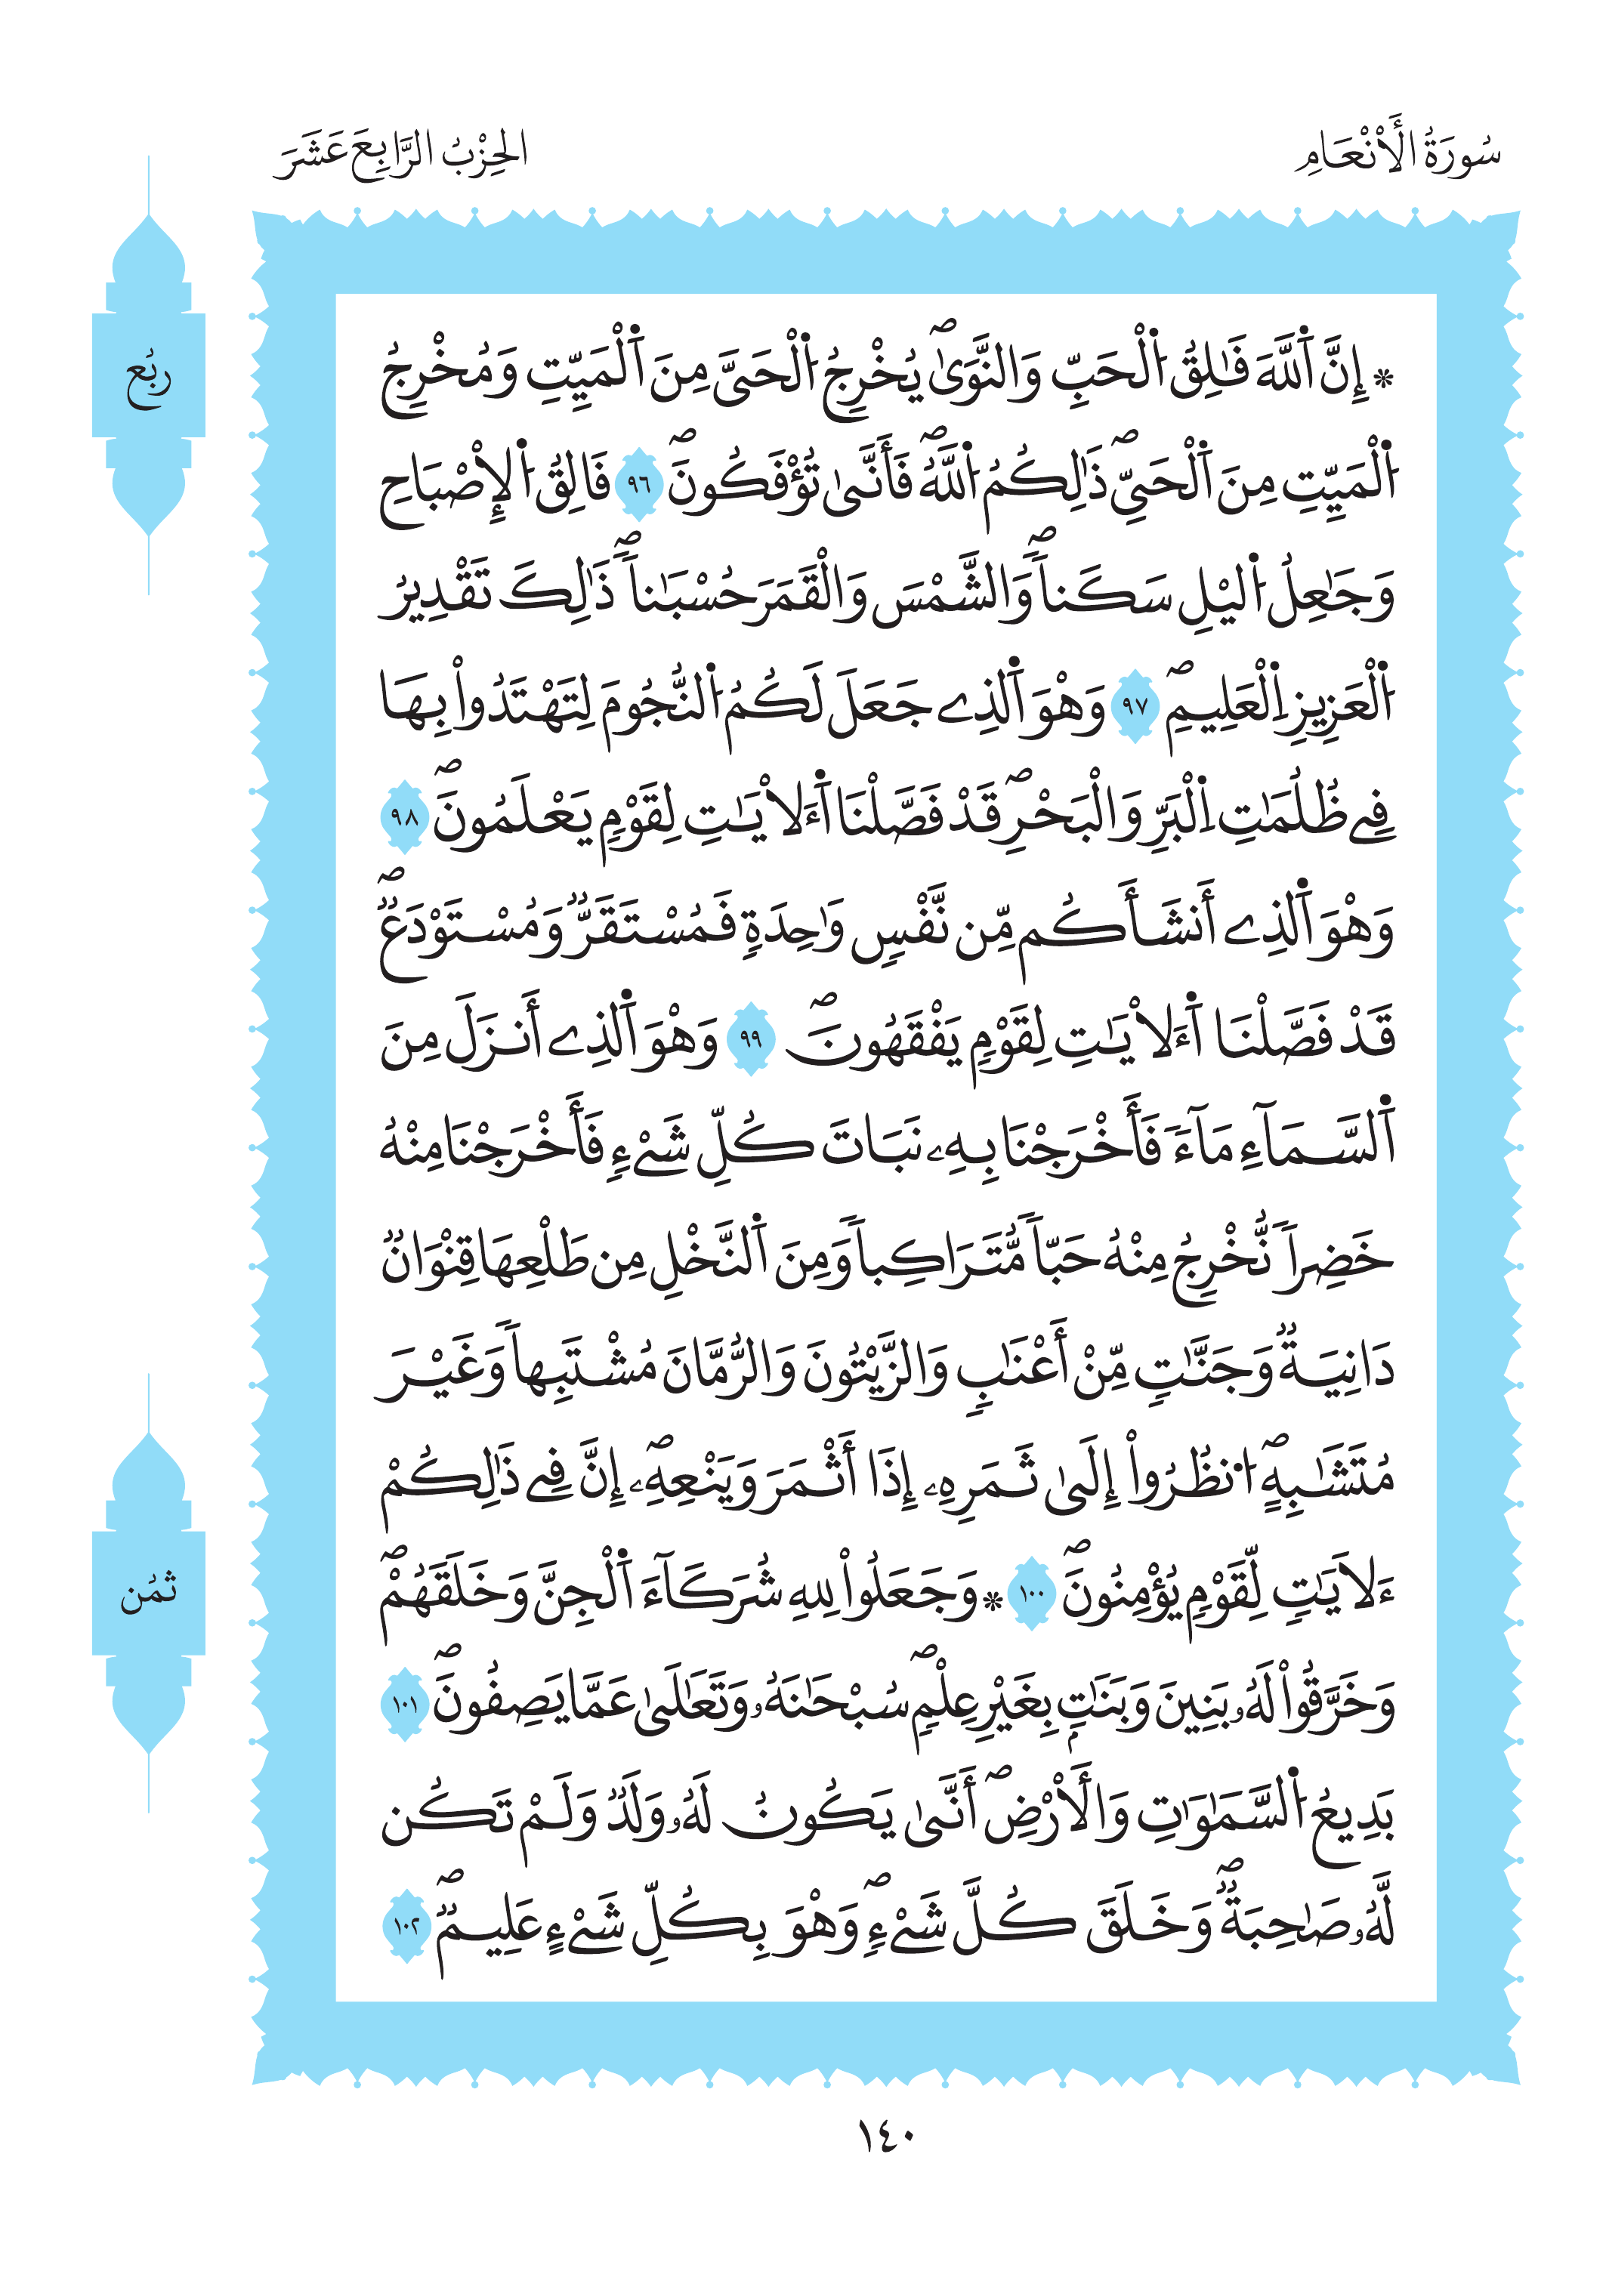 سُورَةُ الْأَنْعَامِ
الحِزْبُ الرَّابِعَ عَشَرَ
ربُع
* إِنَّ اَ۬للَّهَ فَٰلِقُ اُ۬لْحَبِّ وَالنَّوَىٰۖ يُخْرِجُ اُ۬لْحَيَّ مِنَ اَ۬لْمَيِّتِ وَمُخْرِجُ
اُ۬لْمَيِّتِ مِنَ اَ۬لْحَيِّۖ ذَٰلِكُمُ اُ۬للَّهُۖ فَأَنَّىٰ تُؤْفَكُونَۖ ٩٦ فَالِقُ اُ۬لْإِصْبَاحِ
وَجَٰعِلُ اُ۬ليْلِ سَكَناٗۖ وَالشَّمْسَ وَالْقَمَرَ حُسْبَٰناٗۖ ذَٰلِكَ تَقْدِيرُ
اُ۬لْعَزِيزِ اِ۬لْعَلِيمِۖ ٩٧ وَهْوَ اَ۬لذِے جَعَلَ لَكُمُ اُ۬لنُّجُومَ لِتَهْتَدُواْ بِهَا
فِے ظُلُمَٰتِ اِ۬لْبَرِّ وَالْبَحْرِۖ قَدْ فَصَّلْنَا اَ۬ءَلَايَٰتِ لِقَوْمٖ يَعْلَمُونَۖ ٩٨
وَهْوَ اَ۬لذِے أَنشَأَكُم مِّن نَّفْسٖ وَٰحِدَةٖ فَمُسْتَقَرّٞ وَمُسْتَوْدَعٞۖ
قَدْ فَصَّلْنَا اَ۬ءَلَايَٰتِ لِقَوْمٖ يَفْقَهُونَۖ ٩٩ وَهْوَ اَ۬لذِے أَنزَلَ مِنَ
اَ۬لسَّمَآءِ مَآءٗ فَأَخْرَجْنَا بِهِۦ نَبَاتَ كُلِّ شَےْءٖ فَأَخْرَجْنَا مِنْهُ
خَضِراٗ نُّخْرِجُ مِنْهُ حَبّاٗ مُّتَرَاكِباٗ وَمِنَ اَ۬لنَّخْلِ مِن طَلْعِهَا قِنْوَانٞ
دَانِيَةٞ وَجَنَّٰتٖ مِّنْ أَعْنَٰبٖ وَالزَّيْتُونَ وَالرُّمَّانَ مُشْتَبِهاٗ وَغَيْرَ
مُتَشَٰبِهٍۖ اُ۟نظُرُواْ إِلَىٰ ثَمَرِهِۦ إِذَا أَثْمَرَ وَيَنْعِهِۦۖ إِنَّ فِے ذَٰلِكُمْ
ءَلَايَٰتٖ لِّقَوْمٖ يُؤْمِنُونَۖ ١٠٠ * وَجَعَلُواْ لِلهِ شُرَكَآءَ اَ۬لْجِنَّ وَخَلَقَهُمْۖ
ثمُن
وَخَرَّقُواْ لَهُۥ بَنِينَ وَبَنَٰتِۢ بِغَيْرِ عِلْمٖۖ سُبْحَٰنَهُۥ وَتَعَٰلَىٰ عَمَّا يَصِفُونَۖ ١٠١
بَدِيعُ اُ۬لسَّمَٰوَٰتِ وَالْأَرْضِۖ أَنَّىٰ يَكُونُ لَهُۥ وَلَدٞ وَلَمْ تَكُن
لَّهُۥ صَٰحِبَةٞۖ وَخَلَقَ كُلَّ شَےْءٖۖ وَهْوَ بِكُلِّ شَےْءٍ عَلِيمٞۖ ١٠٢
١٤٠